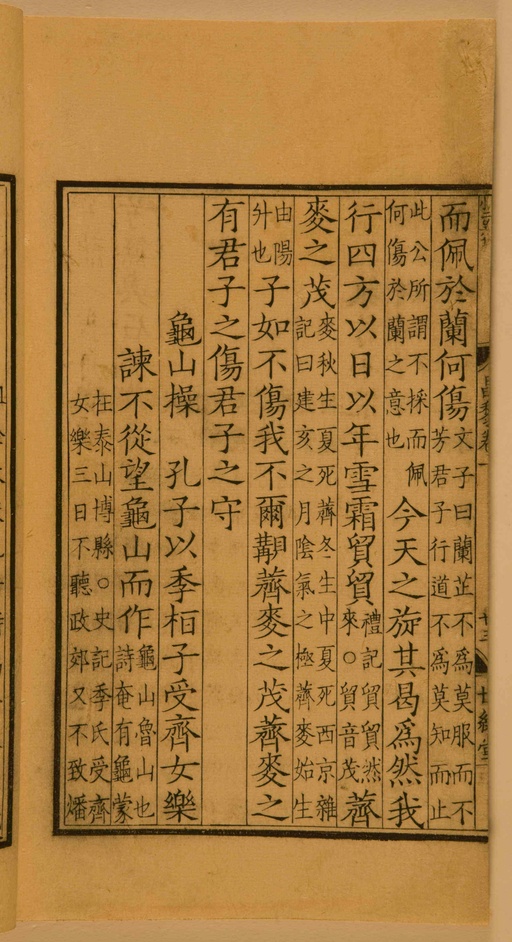 而佩於蘭何傷文子曰蘭芷不爲莫服而不芳君子行道不爲莫知而止
此公所謂不採而佩何傷於蘭之意也今天之旋其曷爲然我
行四方以日以年雪霜貿貿禮記貿貿然來○貿音茂薺
麥之茂麥秋生夏死薺冬生中夏死西京雜記曰建亥之月陰氣之極薺麥茹生
由陽升也子如不傷我不爾覯薺麥之茂薺麥之
有君子之傷君子之守
龜山操　孔子以季桓子受齊女樂
諫不從望龜山而作龜山魯山也詩奄有龜蒙
在泰山博縣○史記季氏受齊女樂三日不聽政郊又不致燔